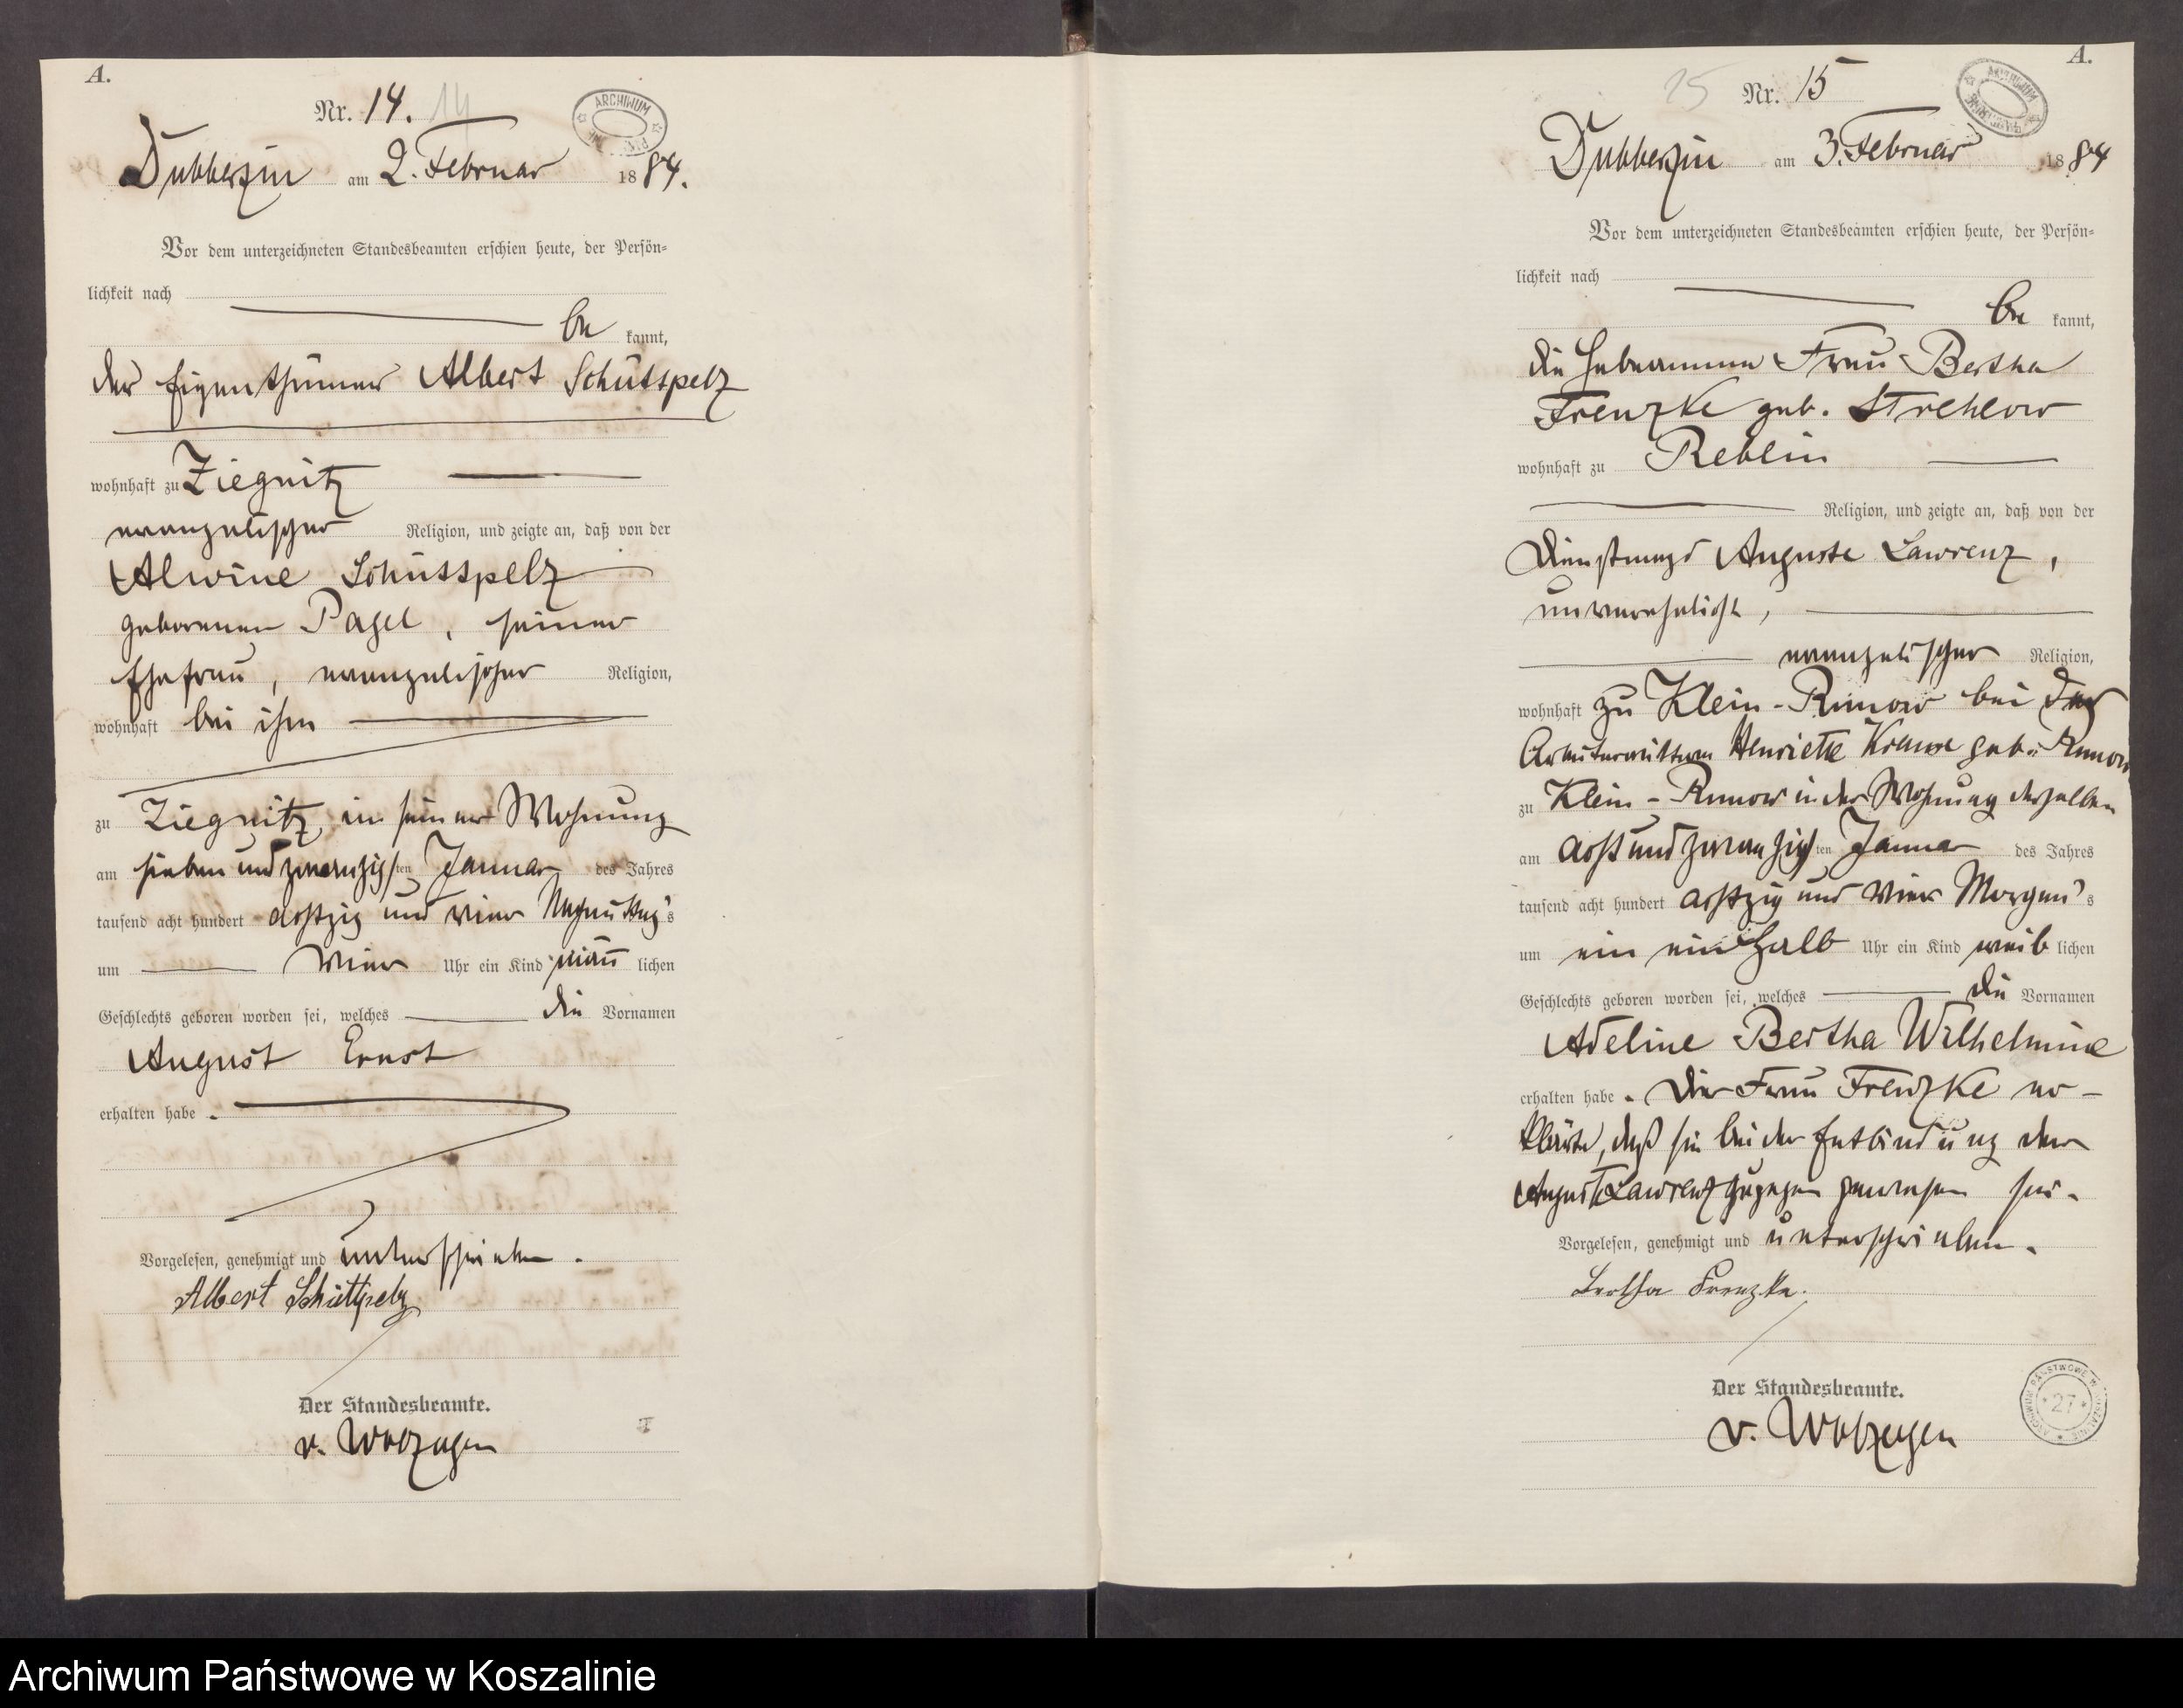 A.
Nr. 14. 14
ARCHIWUM
Dubberzin am 2. Februar 1884.
Vor dem unterzeichneten Standesbeamten erschien heute, der Persön=
lichkeit nach
be kannt,
der Eigenthümer Albert Schütspelz
wohnhaft zu Ziegnitz
evangelischer Religion, und zeigte an, daß von der
Alwine Schütspelz
geborenen Pagel, seiner
Ehefrau, evangelischer Religion,
wohnhaft bei ihm
zu Ziegnitz in seiner Wohnung
am sieben und zwanzigsten Januar des Jahres
tausend acht hundert achtzig und vier Nachmittags
um vier Uhr ein Kind männlichen
Geschlechts geboren worden sei, welches die Vornamen
August Ernst
erhalten habe.
Vorgelesen, genehmigt und unterschrieben.
Albert Schüttpelz
Der Standesbeamte.
v. Wolzogen
A.
15 Nr. 15
ARCHIWUM
Dubberzin am 3. Februar 1884
Vor dem unterzeichneten Standesbeamten erschien heute, der Persön=
lichkeit nach
be kannt,
die Hebeamme Frau Bertha
Frenzke geb. Strehlow
wohnhaft zu Reblin
Religion, und zeigte an, daß von der
Dienstmagd Auguste Lawrenz,
unverehelicht,
evangelischer Religion,
wohnhaft zu Klein-Runow bei der
Arbeiterwittwe Henriette Krause geb. Runow
zu Klein-Runow in der Wohnung derselben
am acht und zwanzigsten Januar des Jahres
tausend acht hundert achtzig und vier Morgen's
um ein einhalb Uhr ein Kind weiblichen
Geschlechts geboren worden sei, welches die Vornamen
Adeline Bertha Wilhelmine
erhalten habe. Die Frau Frenzke er-
klärte, daß sie bei der Entbindung der
Auguste Lawrenz zugegen gewesen sei.
Vorgelesen, genehmigt und unterschrieben.
Bertha Frenzke.
Der Standesbeamte.
v. Wolzogen
ARCHIWUM PAŃSTWOWE W KOSZALINIE
27
Archiwum Państwowe w Koszalinie